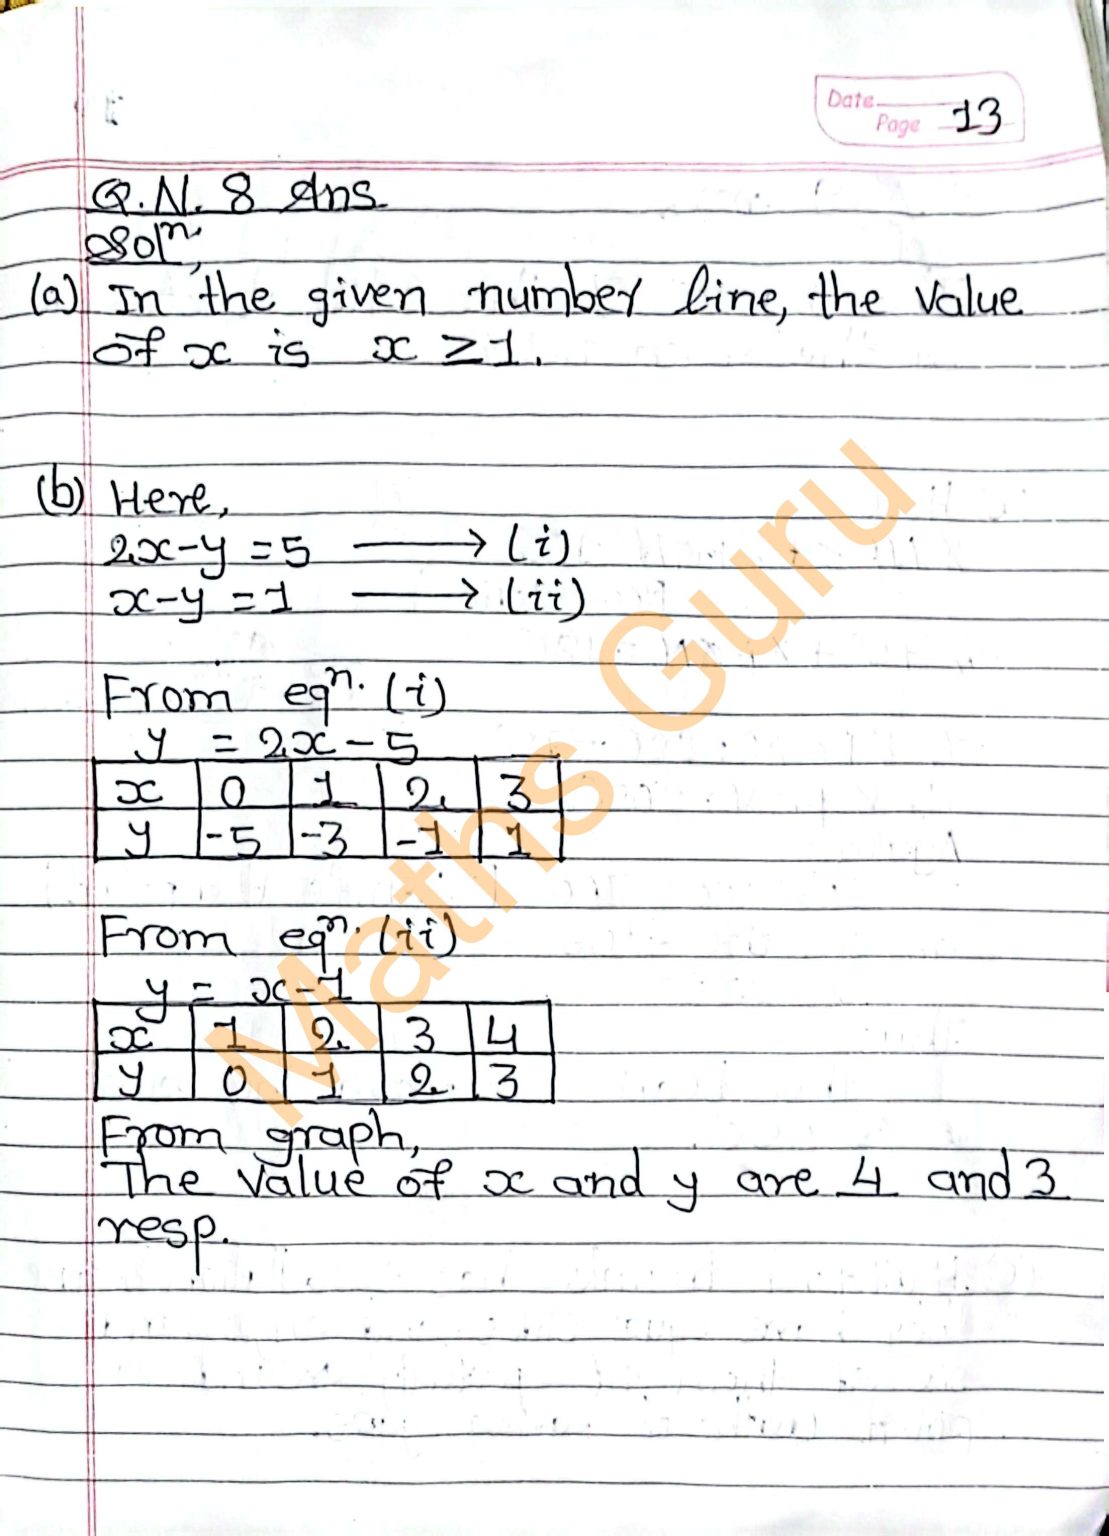 Date
Page 13
Q.N. 8 Ans.
Solⁿ,
(a) In the given number line, the value
of x is x ≥ 1.
(b) Here,
2x-y = 5 ⟶ (i)
x-y = 1 ⟶ (ii)
From eqⁿ. (i)
y = 2x - 5
x 0 1 2 3
y -5 -3 -1 1
From eqⁿ. (ii)
y = x-1
x 1 2 3 4
y 0 1 2 3
From graph,
The value of x and y are 4 and 3
resp.
Maths Guru